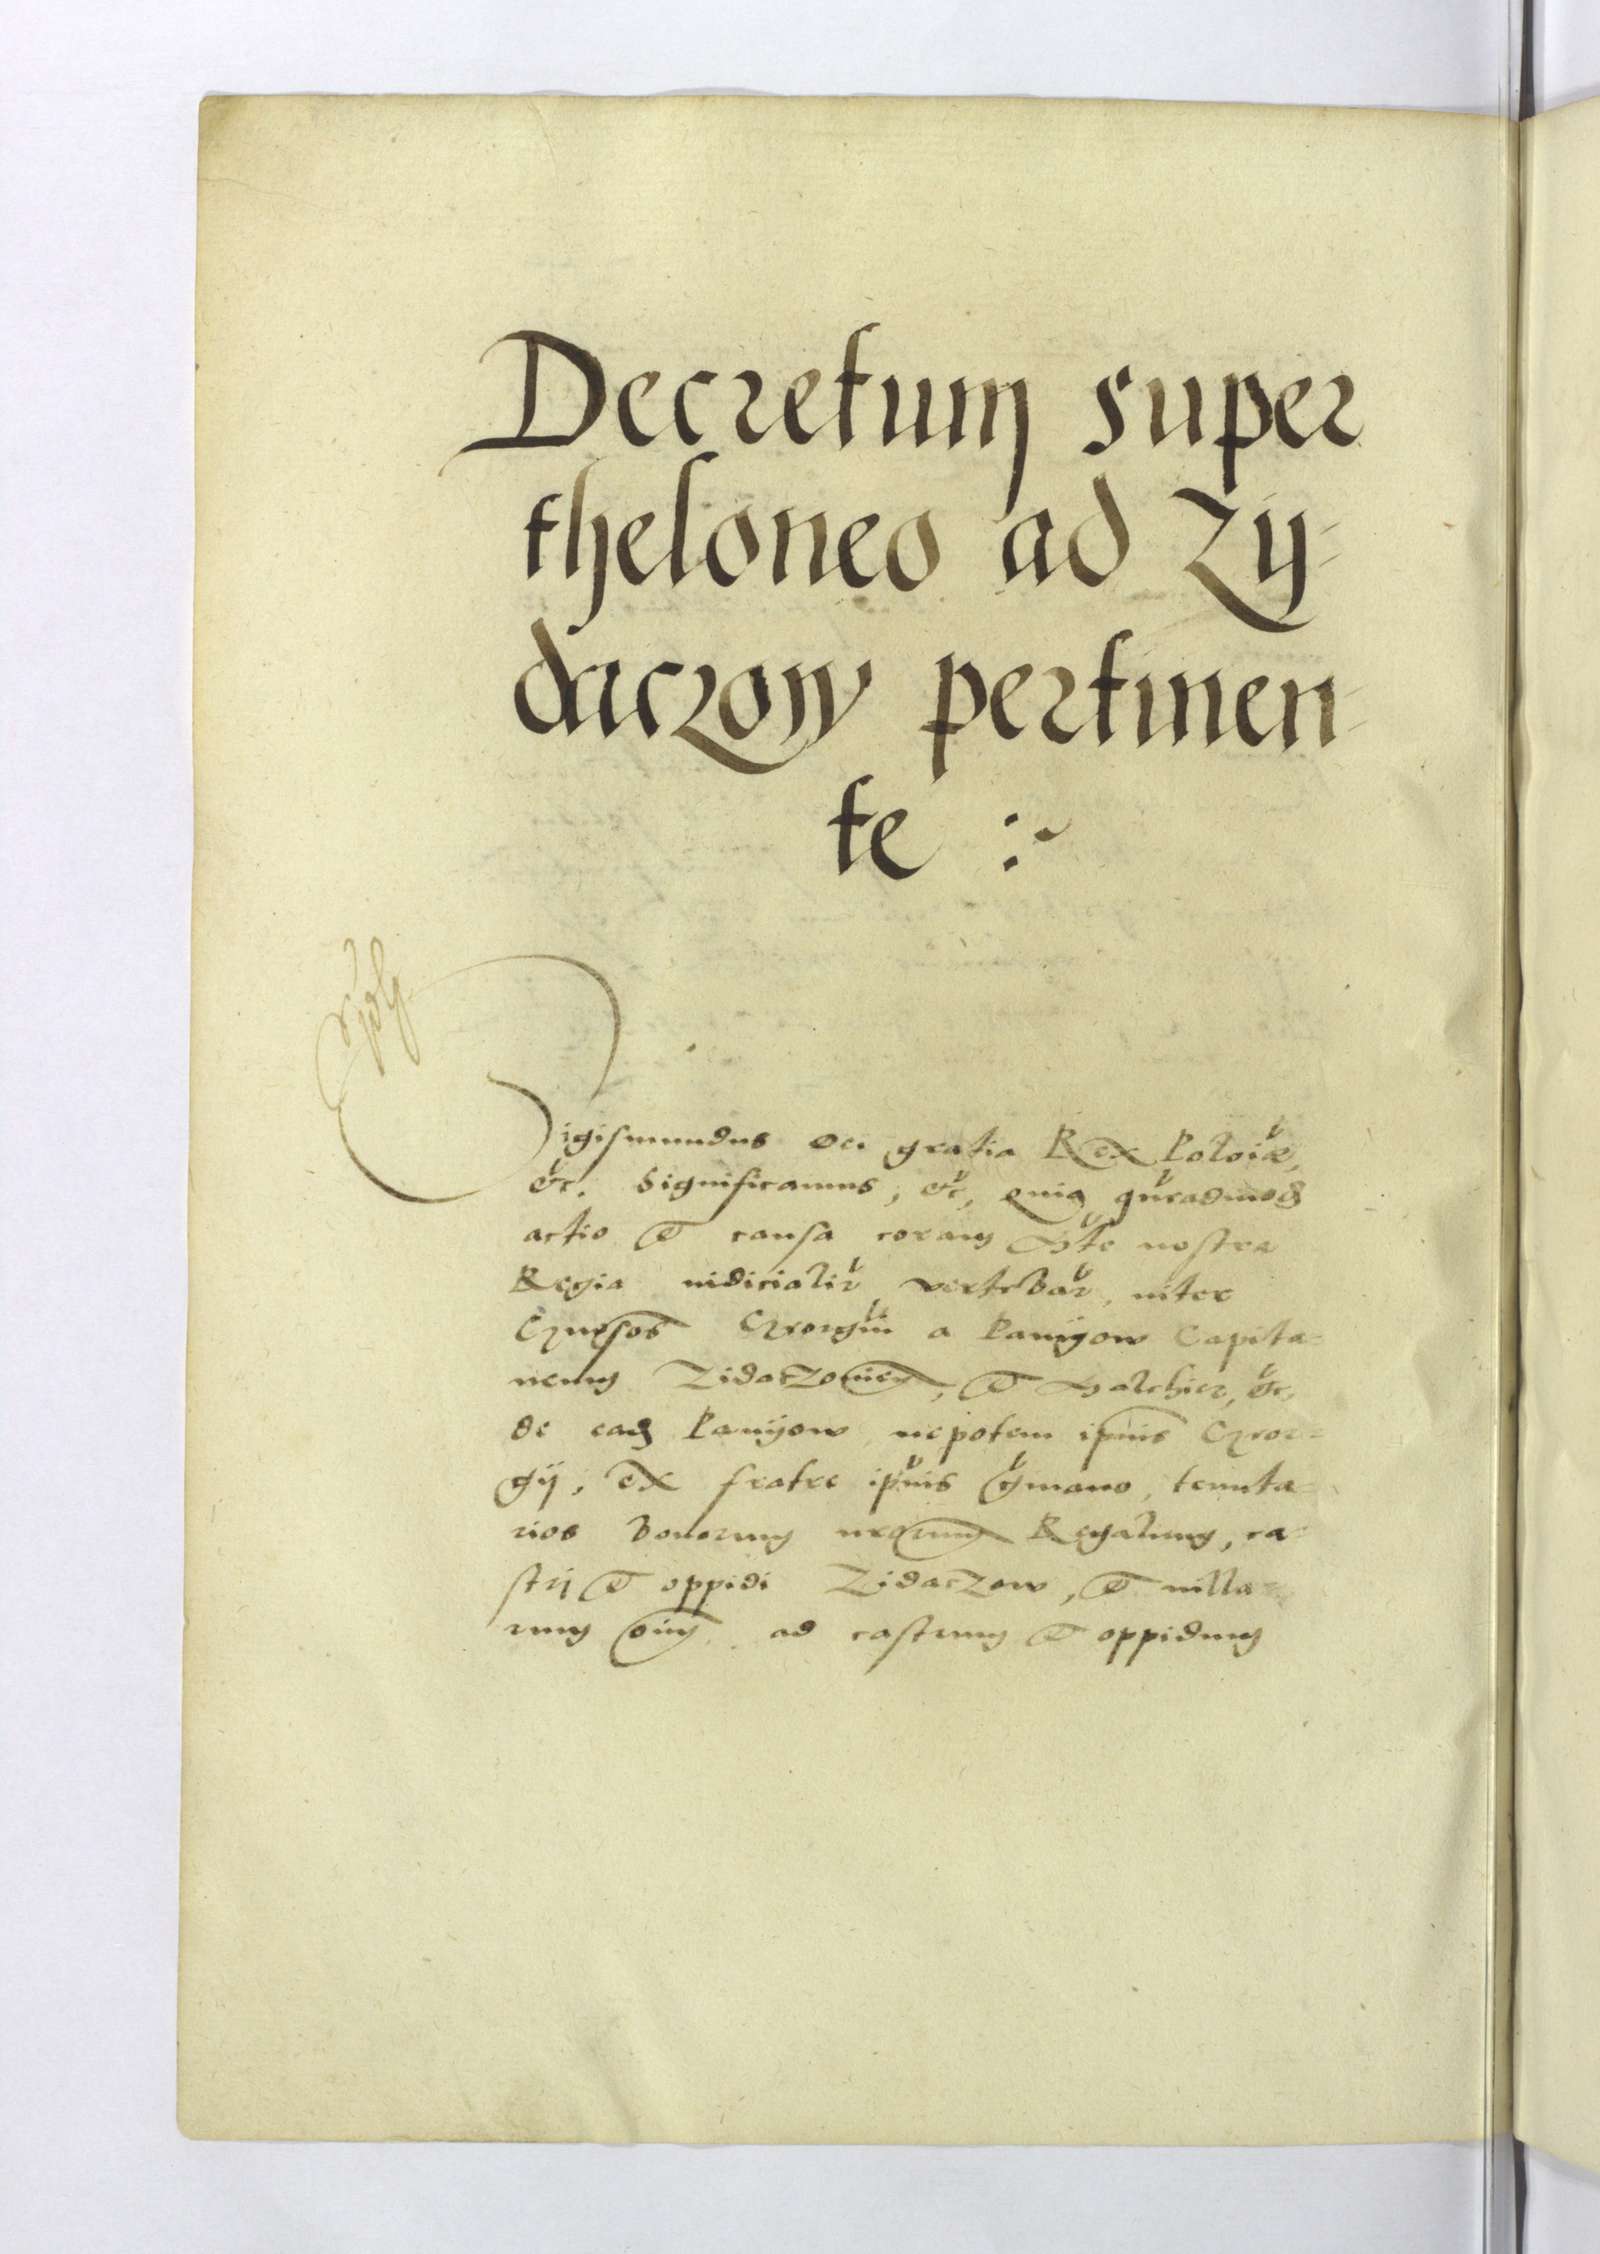 Decretum super
theloneo ad Zy-
daczow pertinen-
te :~
Sigismundus Dei gratia Rex Poloiæ,
etc. Significamus, etc, quia
actio et causa coram Mte nostra
Regia iudicialir vertebar, inter
Gnosos Georgiu a Paniow Capita-
neum Zidaczowien, et, etc,
de ead Paniow nepotem ipius Geor-
gij, ex fratre ipius germano, tenuta-
rios bonorum nrorum Regalium, ca-
stri et oppidi Zidaczow, et villa-
rum oium ad castrum et oppidum